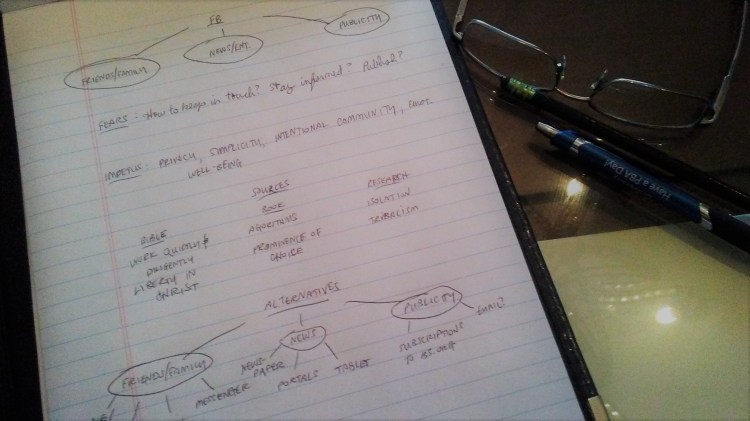 FB
PUBLICITY
FRIENDS/FAMILY
NEWS/ENT.
FEARS: How to keep in touch? Stay informed? Publicize?
IMPETUS: PRIVACY, SIMPLICITY, INTENTIONAL COMMUNITY, EMOT.
WELL-BEING
SOURCES
BIBLE
WORK QUIETLY &
DILIGENTLY
LIBERTY IN
CHRIST
BOOK
ALGORITHMS
PROMINENCE OF
CHOICE
RESEARCH
ISOLATION
TRIBALISM
ALTERNATIVES
FRIENDS/FAMILY
NEWS
PUBLICITY
MESSENGER
NEWS-
PAPER
PORTALS
TABLET
SUBSCRIPTIONS
EMAIL?
Have a PBA Day!